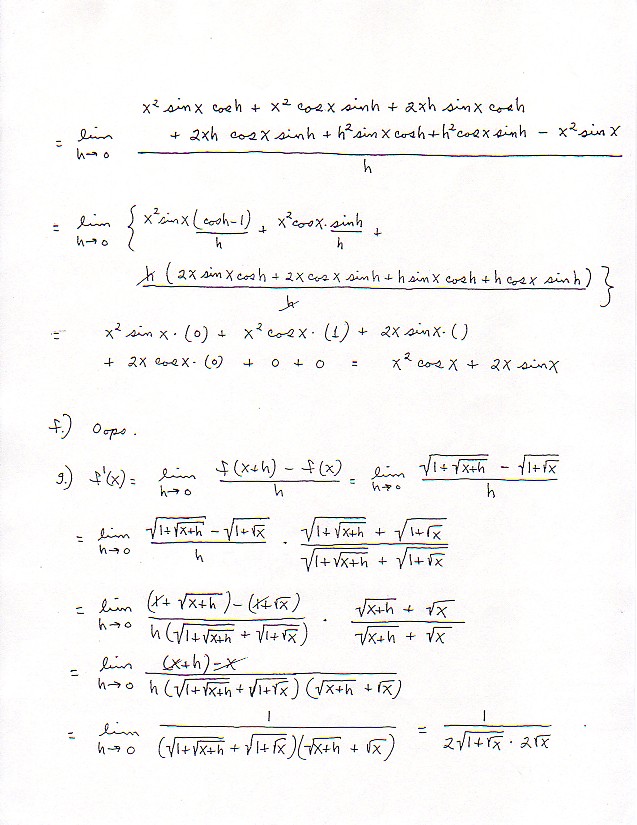 x² sin x cos h + x² cos x sin h + 2xh sin x cos h
= lim h→0 + 2xh cos x sin h + h² sin x cos h + h² cos x sin h − x² sin x
h
= lim h→0 { x² sin x (cos h − 1)/h + x² cos x · sin h/h +
h (2x sin x cos h + 2x cos x sin h + h sin x cos h + h cos x sin h)/h }
= x² sin x · (0) + x² cos x · (1) + 2x sin x · ()
+ 2x cos x · (0) + 0 + 0 = x² cos x + 2x sin x
f.) Oops.
g.) f'(x) = lim h→0 (f(x+h) − f(x))/h = lim h→0 (√(1+√(x+h)) − √(1+√x))/h
= lim h→0 (√(1+√(x+h)) − √(1+√x))/h · (√(1+√(x+h)) + √(1+√x))/(√(1+√(x+h)) + √(1+√x))
= lim h→0 ((1 + √(x+h)) − (1+√x))/(h(√(1+√(x+h)) + √(1+√x))) · (√(x+h) + √x)/(√(x+h) + √x)
= lim h→0 ((x+h) − x)/(h(√(1+√(x+h)) + √(1+√x))(√(x+h) + √x))
= lim h→0 1/((√(1+√(x+h)) + √(1+√x))(√(x+h) + √x)) = 1/(2√(1+√x) · 2√x) .